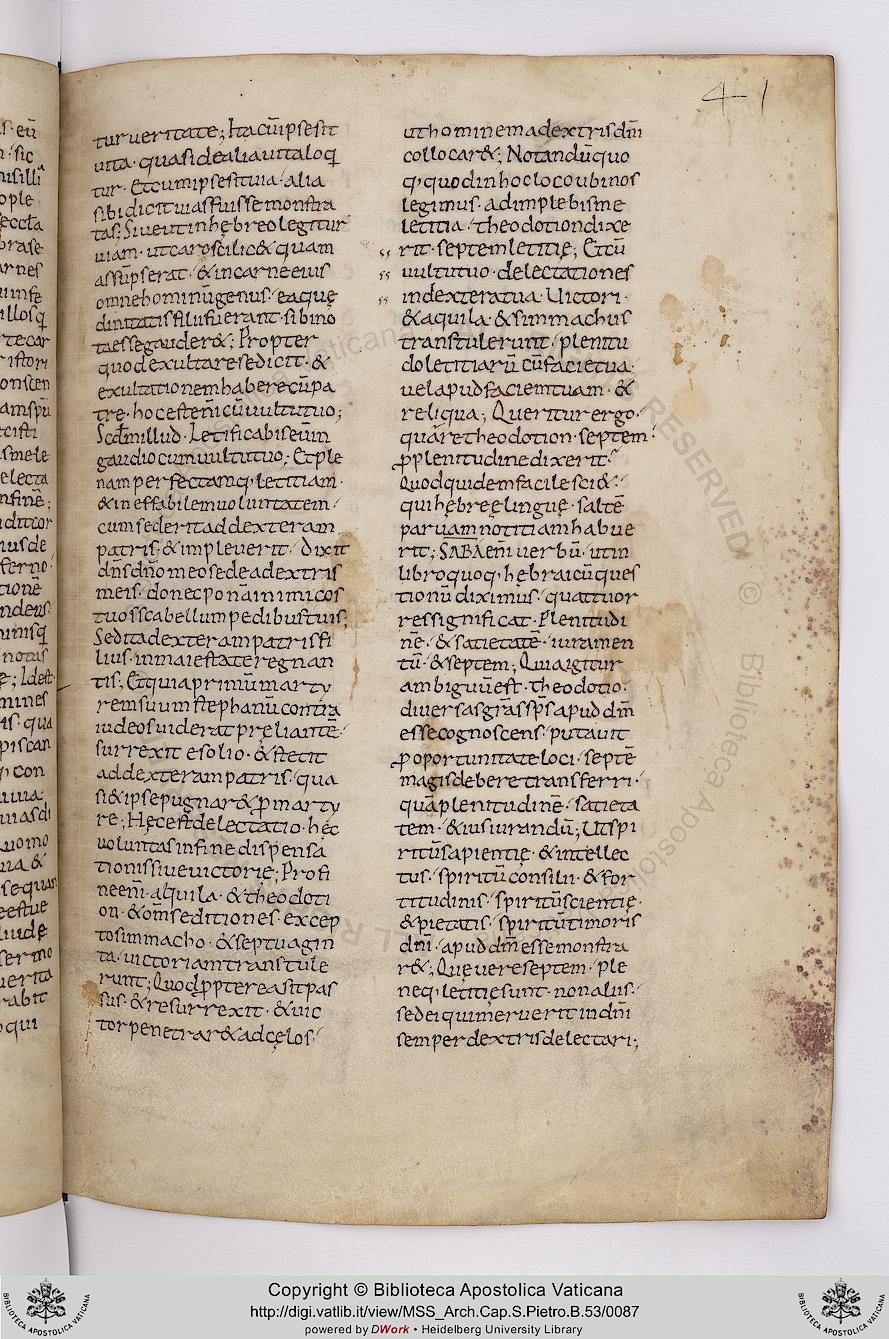 41
turveritate; Itacūipsesit
uita· quasidealiauitaloq̄
tur· Etcumipsesituia· alia
sibidicituiasfuissemonstra
tas; Siueutinhebreolegitur
uiam· utcaroscilic& quam
assūpserat· &incarneeius
omnehominūgenus· eaque
diuitatisfilifuerant· sibino
taessegauder&; Propter
quodexultaresedicit· &
exultationemhaberecūpa
tre· hocestenīcūuultutuo;
Scdmillud· Letificabiseūin
gaudiocumuultutuo; Etple
namperfectamq; letitiam·
&ineffabilemuoluntatem·
cumsederitaddexteram
patris· &impleuerit· Dixit
dn̄sdn̄omeosedeadextris
meis· donecponāinimicos
tuosscabellumpedibustuis;
Seditadexterampatrisfi
lius· inmaiestateregnan
tis; Etquiaprimūmarty
remsuumstephanūcontra
iudeosuiderat preliantē·
surrexit esolio· &stetit
addexterampatris· qua
si&ipsepugnar& p̱marty
re; Hęcestdelectatio· hęc
uoluntasinfinedispensa
tionissiueuictorię; Profi
neenī· aquila· &theodoti
on· &om̄seditiones· excep
tosimmacho· &septuagin
ta· uictoriamtranstule
runt; Quodp̱ptereasitpas
sus· &resurrexit· &uic
torpenetrar&adcęlos·
uthominemadextrisdn̄i
collocar&; Notandūquo
q; quodinhoclocoubinos
legimus· adimplebisme
letitia· theodotiondixe
rit· septemletitię; Etcū
uultutuo· delectationes
indexteratua· Uictori·
&aquila· &simmachus
transtulerunt· plenitu
doletitiarū cūfacietua·
uelapudfaciemtuam· &
reliqua; Queriturergo·
quaretheodotion· septem·
p̱plenitudinedixerit·
Quodquidemfacilesci&·
quihębreęlinguę· saltē
paruamnotitiamhabue
rit; SABAenīuerbū· utin
libroquoq; hebraicūques
tionūdiximus· quattuor
ressignificat· Plenitudi
nē· &satietatē· iuramen
tū· &septem; Quiaigitur
ambiguūest· theodotio·
diuersasgrāssp̄sapuddm̄
essecognoscens· putauit
p̱oportunitateloci· septē
magisdeberetransferri·
quāplenitudinē· satieta
tem· &iusiurandū; Utspi
ritūsapientię· &intellec
tus· spiritūconsilii· &for
titudinis· spiritūscientię·
&pietatis· spiritūtimoris
dn̄i· apuddm̄essemonstra
r&; Quęuereseptem· ple
neq; letitięsunt· nonaliis·
sedeiquimerueritindn̄i
semperdextrisdelectari;
Copyright © Biblioteca Apostolica Vaticana
http://digi.vatlib.it/view/MSS_Arch.Cap.S.Pietro.B.53/0087
powered by DWork • Heidelberg University Library
BIBLIOTECA APOSTOLICA VATICANA
BIBLIOTECA APOSTOLICA VATICANA